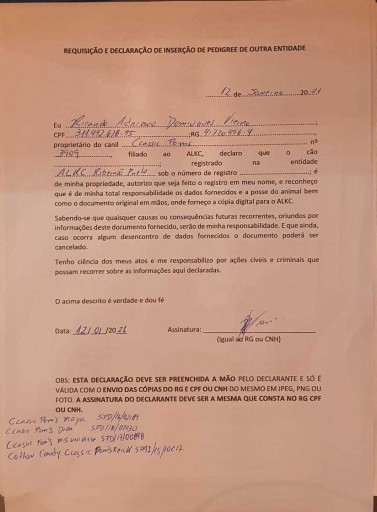 REQUISIÇÃO E DECLARAÇÃO DE INSERÇÃO DE PEDIGREE DE OUTRA ENTIDADE
12 de Janeiro 2021
Eu Ricardo Adriano Domingues
CPF RG
proprietário do canil Classic Poms nº
3909, filiado ao ALKC, declaro que o cão
, registrado na entidade
ALKC sob o número de registro ; é
de minha propriedade, autorizo que seja feito o registro em meu nome, e reconheço
que é de minha total responsabilidade os dados fornecidos e a posse do animal bem
como o documento original em mãos, onde forneço a cópia digital para o ALKC.
Sabendo-se que quaisquer causas ou consequências futuras recorrentes, oriundos por
informações deste documento fornecido, serão de minha responsabilidade. E que ainda,
caso ocorra algum desencontro de dados fornecidos o documento poderá ser
cancelado.
Tenho ciência dos meus atos e me responsabilizo por ações cíveis e criminais que
possam recorrer sobre as informações aqui declaradas.
O acima descrito é verdade e dou fé
Data: 12/01/2021 Assinatura:
(Igual ao RG ou CNH)
OBS: ESTA DECLARAÇÃO DEVE SER PREENCHIDA A MÃO PELO DECLARANTE E SÓ É
VÁLIDA COM O ENVIO DAS CÓPIAS DO RG E CPF OU CNH DO MESMO EM JPEG, PNG OU
FOTO. A ASSINATURA DO DECLARANTE DEVE SER A MESMA QUE CONSTA NO RG CPF
OU CNH.
Classic Pom's Maya
Classic Pom's
Classic Pom's
Cotton Candy Classic